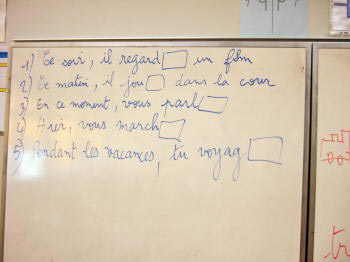 1) Ce soir, il regard□ un film
2) Ce matin, il jou□ dans la cour
3) En ce moment, vous parl□
4) Hier, vous march□
5) Pendant les vacances, tu voyag□
tr